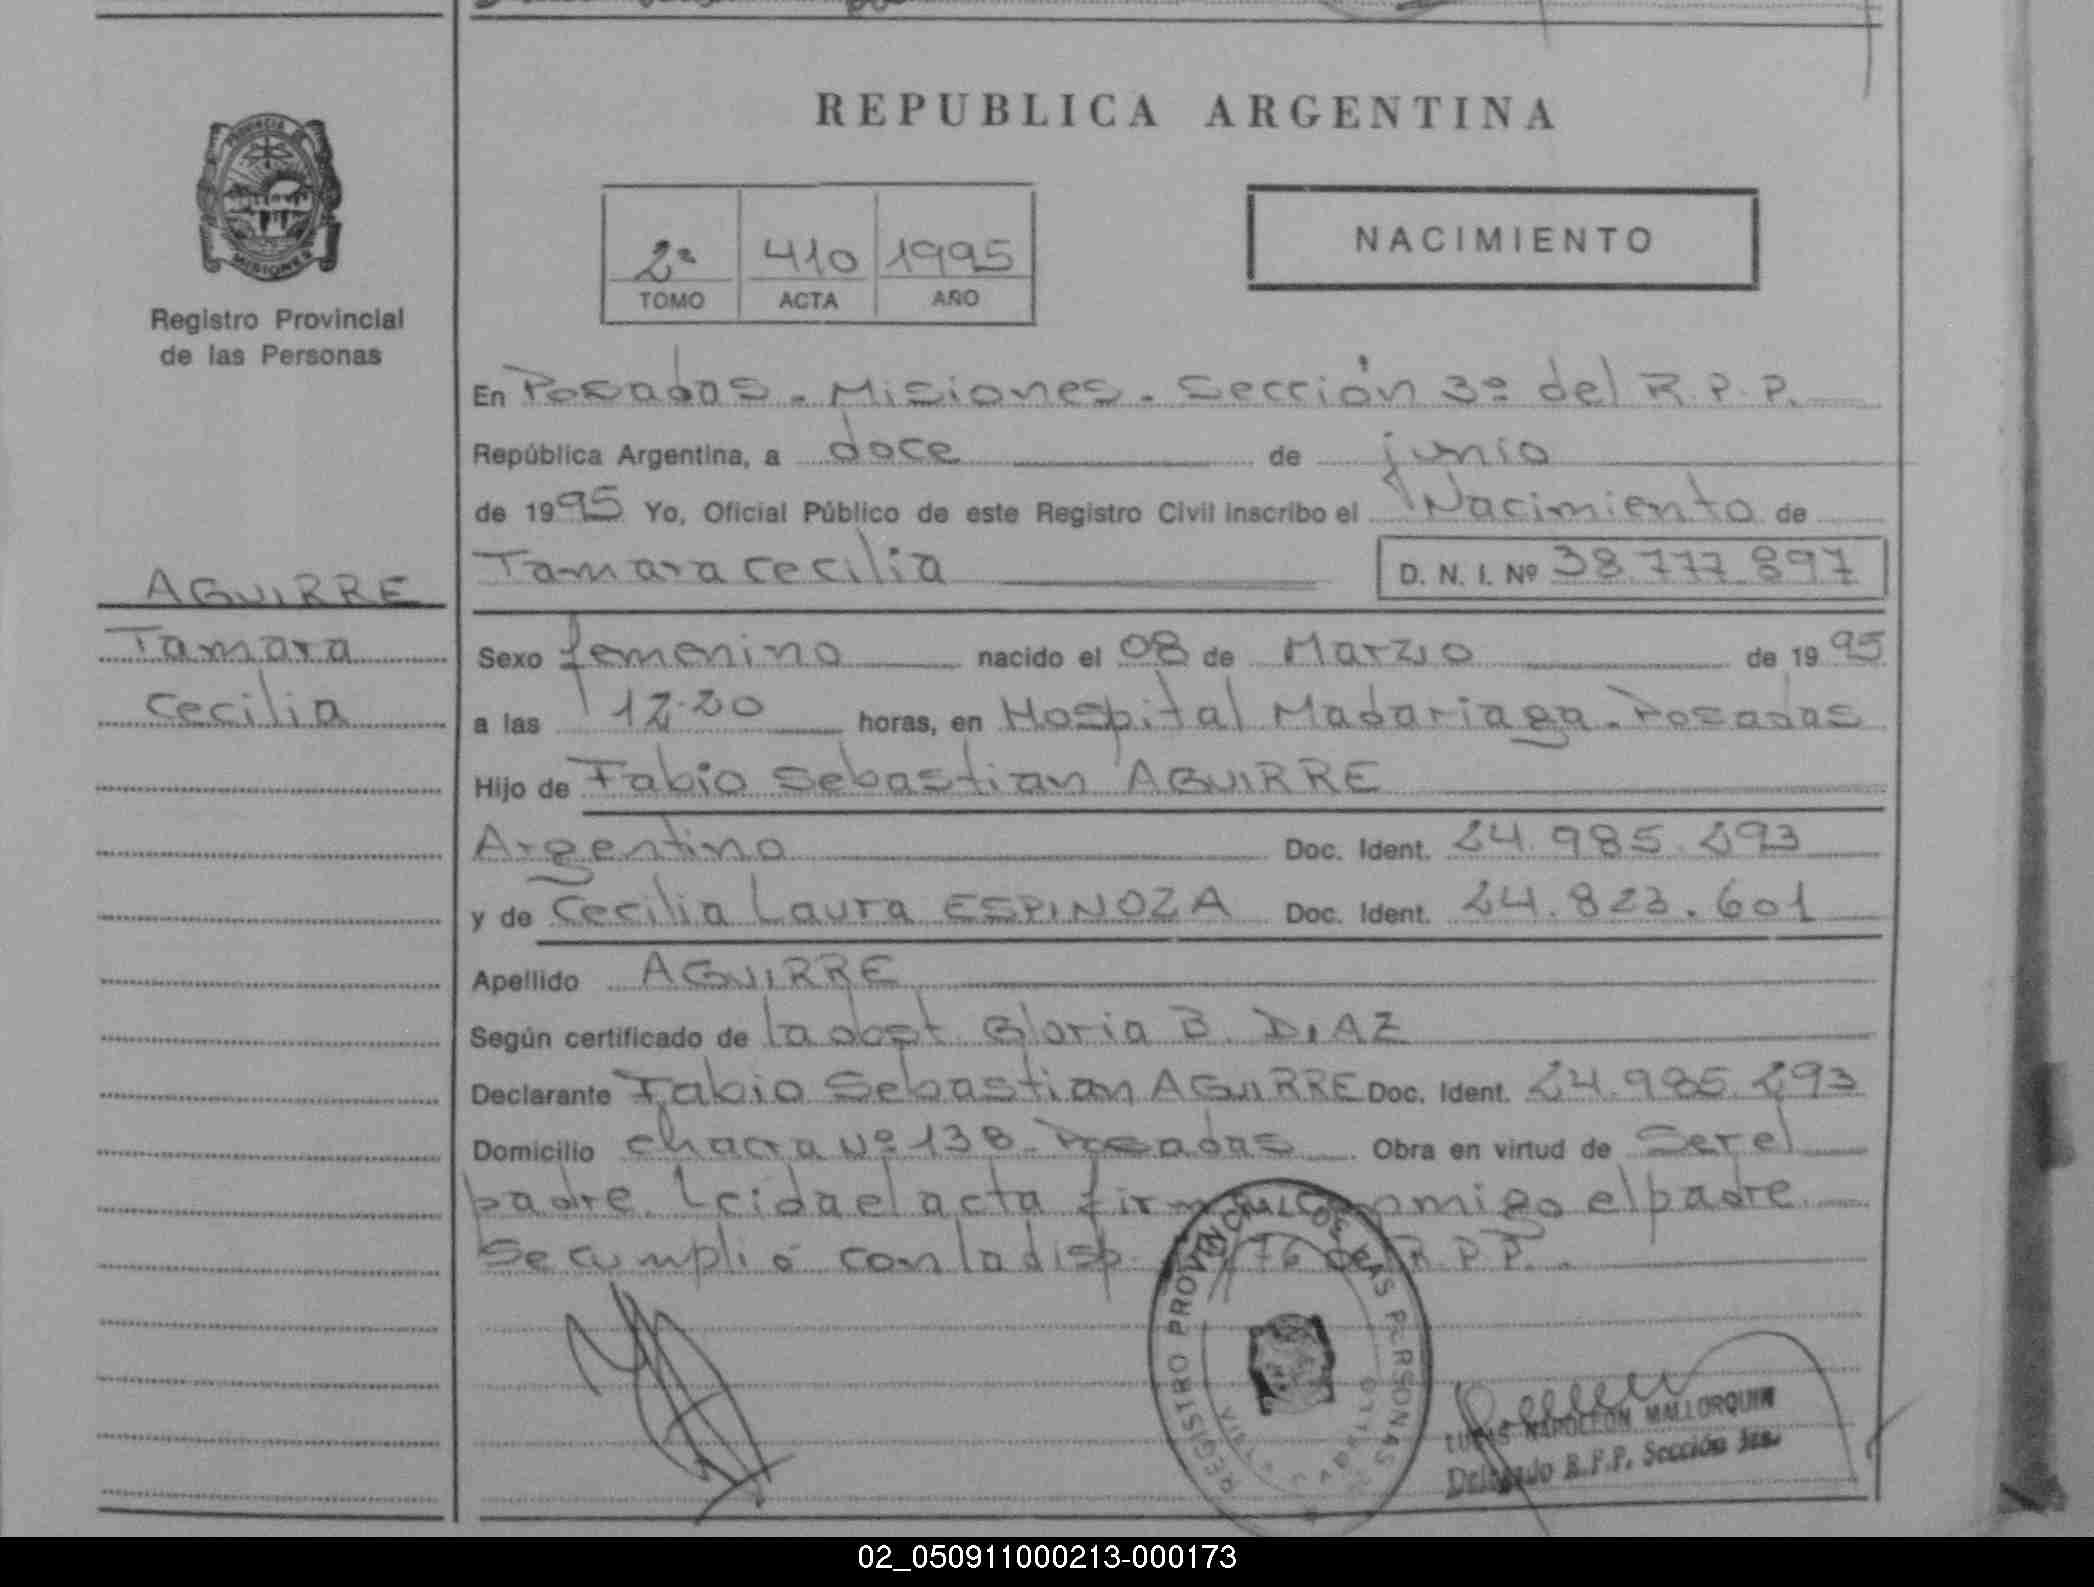 PROVINCIA
MISIONES
Registro Provincial
de las Personas
AGUIRRE
Tamara
Cecilia
REPUBLICA ARGENTINA
2º 410 1995
TOMO ACTA AÑO
NACIMIENTO
En Posadas - Misiones - Sección 3º del R.P.P.
República Argentina, a doce de junio
de 1995 Yo, Oficial Público de este Registro Civil inscribo el Nacimiento de
Tamara cecilia D. N. I. Nº 38.777.897
Sexo femenino nacido el 08 de Marzo de 1995
a las 12.20 horas, en Hospital Madariaga - Posadas
Hijo de Fabio Sebastian AGUIRRE
Argentino Doc. Ident. 24.985.293
y de Cecilia Laura ESPINOZA Doc. Ident. 24.823.601
Apellido AGUIRRE
Según certificado de la obst. Gloria B. DIAZ
Declarante Fabio Sebastian AGUIRRE Doc. Ident. 24.985.293
Domicilio chacra Nº 138 - Posadas Obra en virtud de Ser el
padre. Leida el acta firma conmigo el padre
Se cumplió con la disp. 76 R.P.P.
REGISTRO PROVINCIAL DE LAS PERSONAS
NAPOLEON MALLORQUIN
Delegado R.P.P. Sección
02_050911000213-000173